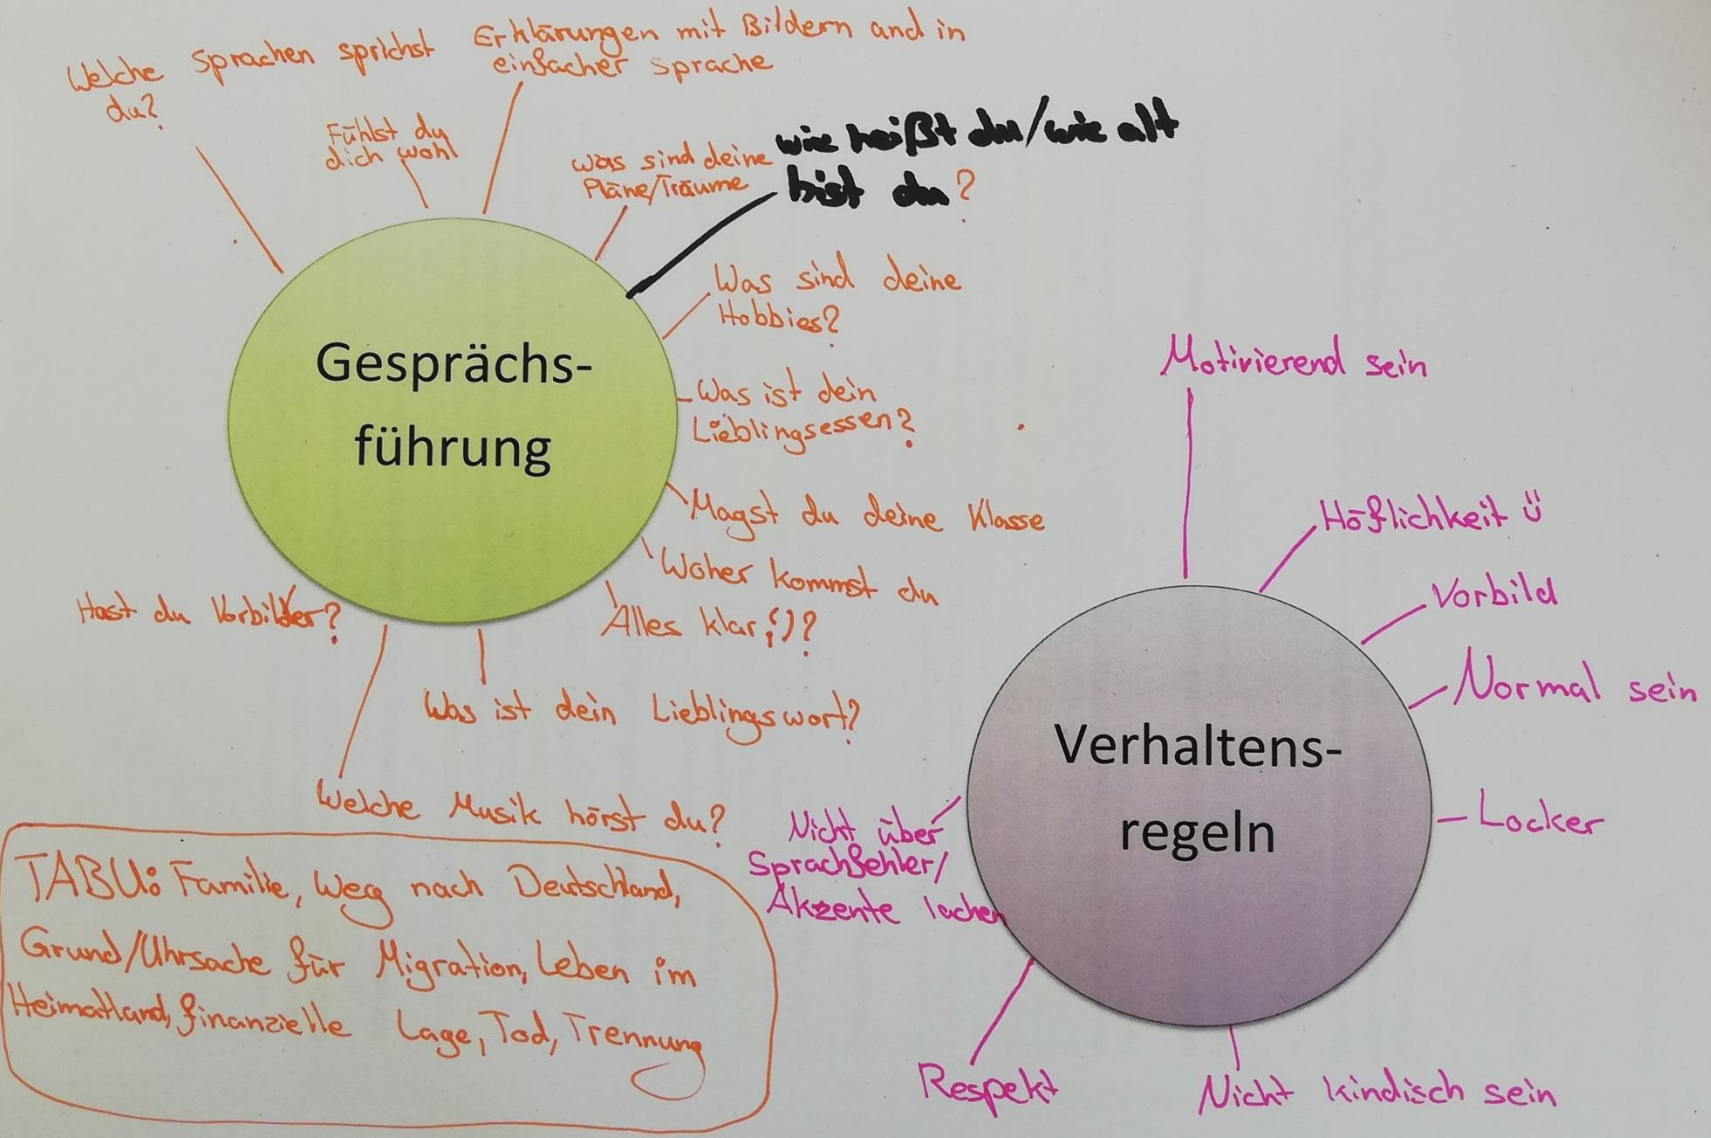 Welche Sprachen sprichst
du?
Erklärungen mit Bildern and in
einfacher Sprache
Fühlst du
dich wohl
was sind deine
Pläne/Träume
wie heißt du/wie alt
bist du?
Was sind deine
Hobbies?
Was ist dein
Lieblingsessen?
Magst du deine Klasse
Woher kommst du
Alles klar ;)?
Gesprächs-
führung
Hast du Vorbilder?
Was ist dein Lieblingswort?
Welche Musik hörst du?
TABU: Familie, Weg nach Deutschland,
Grund/Uhrsache für Migration, Leben im
Heimatland, finanzielle Lage, Tod, Trennung
Motivierend sein
Höflichkeit Ü
Vorbild
Normal sein
Locker
Verhaltens-
regeln
Nicht über
Sprachfehler/
Akzente lachen
Respekt
Nicht kindisch sein